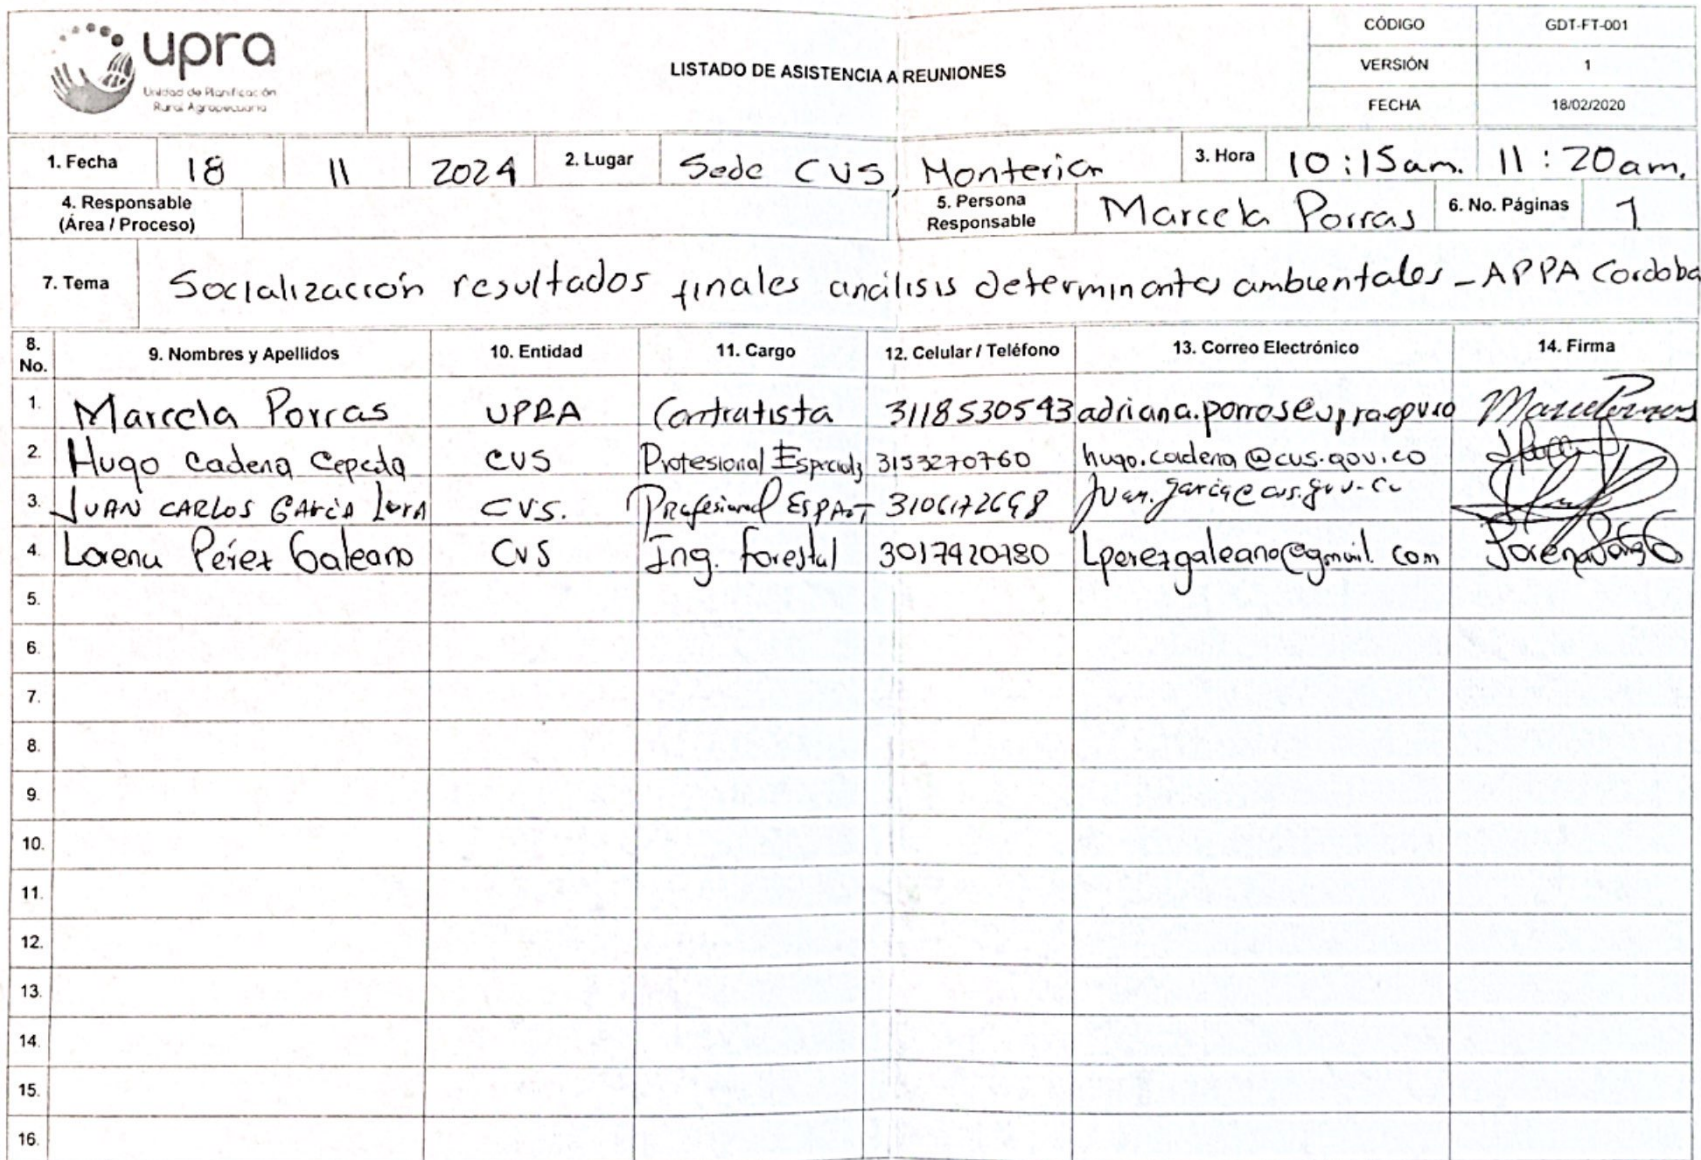 upra
Unidad de Planificación
Rural Agropecuaria
LISTADO DE ASISTENCIA A REUNIONES
CÓDIGO GDT-FT-001
VERSIÓN 1
FECHA 18/02/2020
1. Fecha 18 11 2024 2. Lugar Sede CVS, Monteria 3. Hora 10:15am. 11:20am.
4. Responsable
(Área / Proceso)
5. Persona
Responsable Marcela Porras 6. No. Páginas 1
7. Tema Socialización resultados finales análisis determinantes ambientales - APPA Cordoba
8.
No. 9. Nombres y Apellidos 10. Entidad 11. Cargo 12. Celular / Teléfono 13. Correo Electrónico 14. Firma
1. Marcela Porras UPRA Contratista 3118530543
2. Hugo Cadena Cepeda CVS Profesional 3153270760 hugo.cadena@cvs.gov.co
3. JUAN CARLOS GARCIA CVS. Profesional juan.garcia@cvs.gov.co
4. Lorena Pérez Galeano CVS Ing. Forestal Lperezgaleano@gmail.com
5.
6.
7.
8.
9.
10.
11.
12.
13.
14.
15.
16.